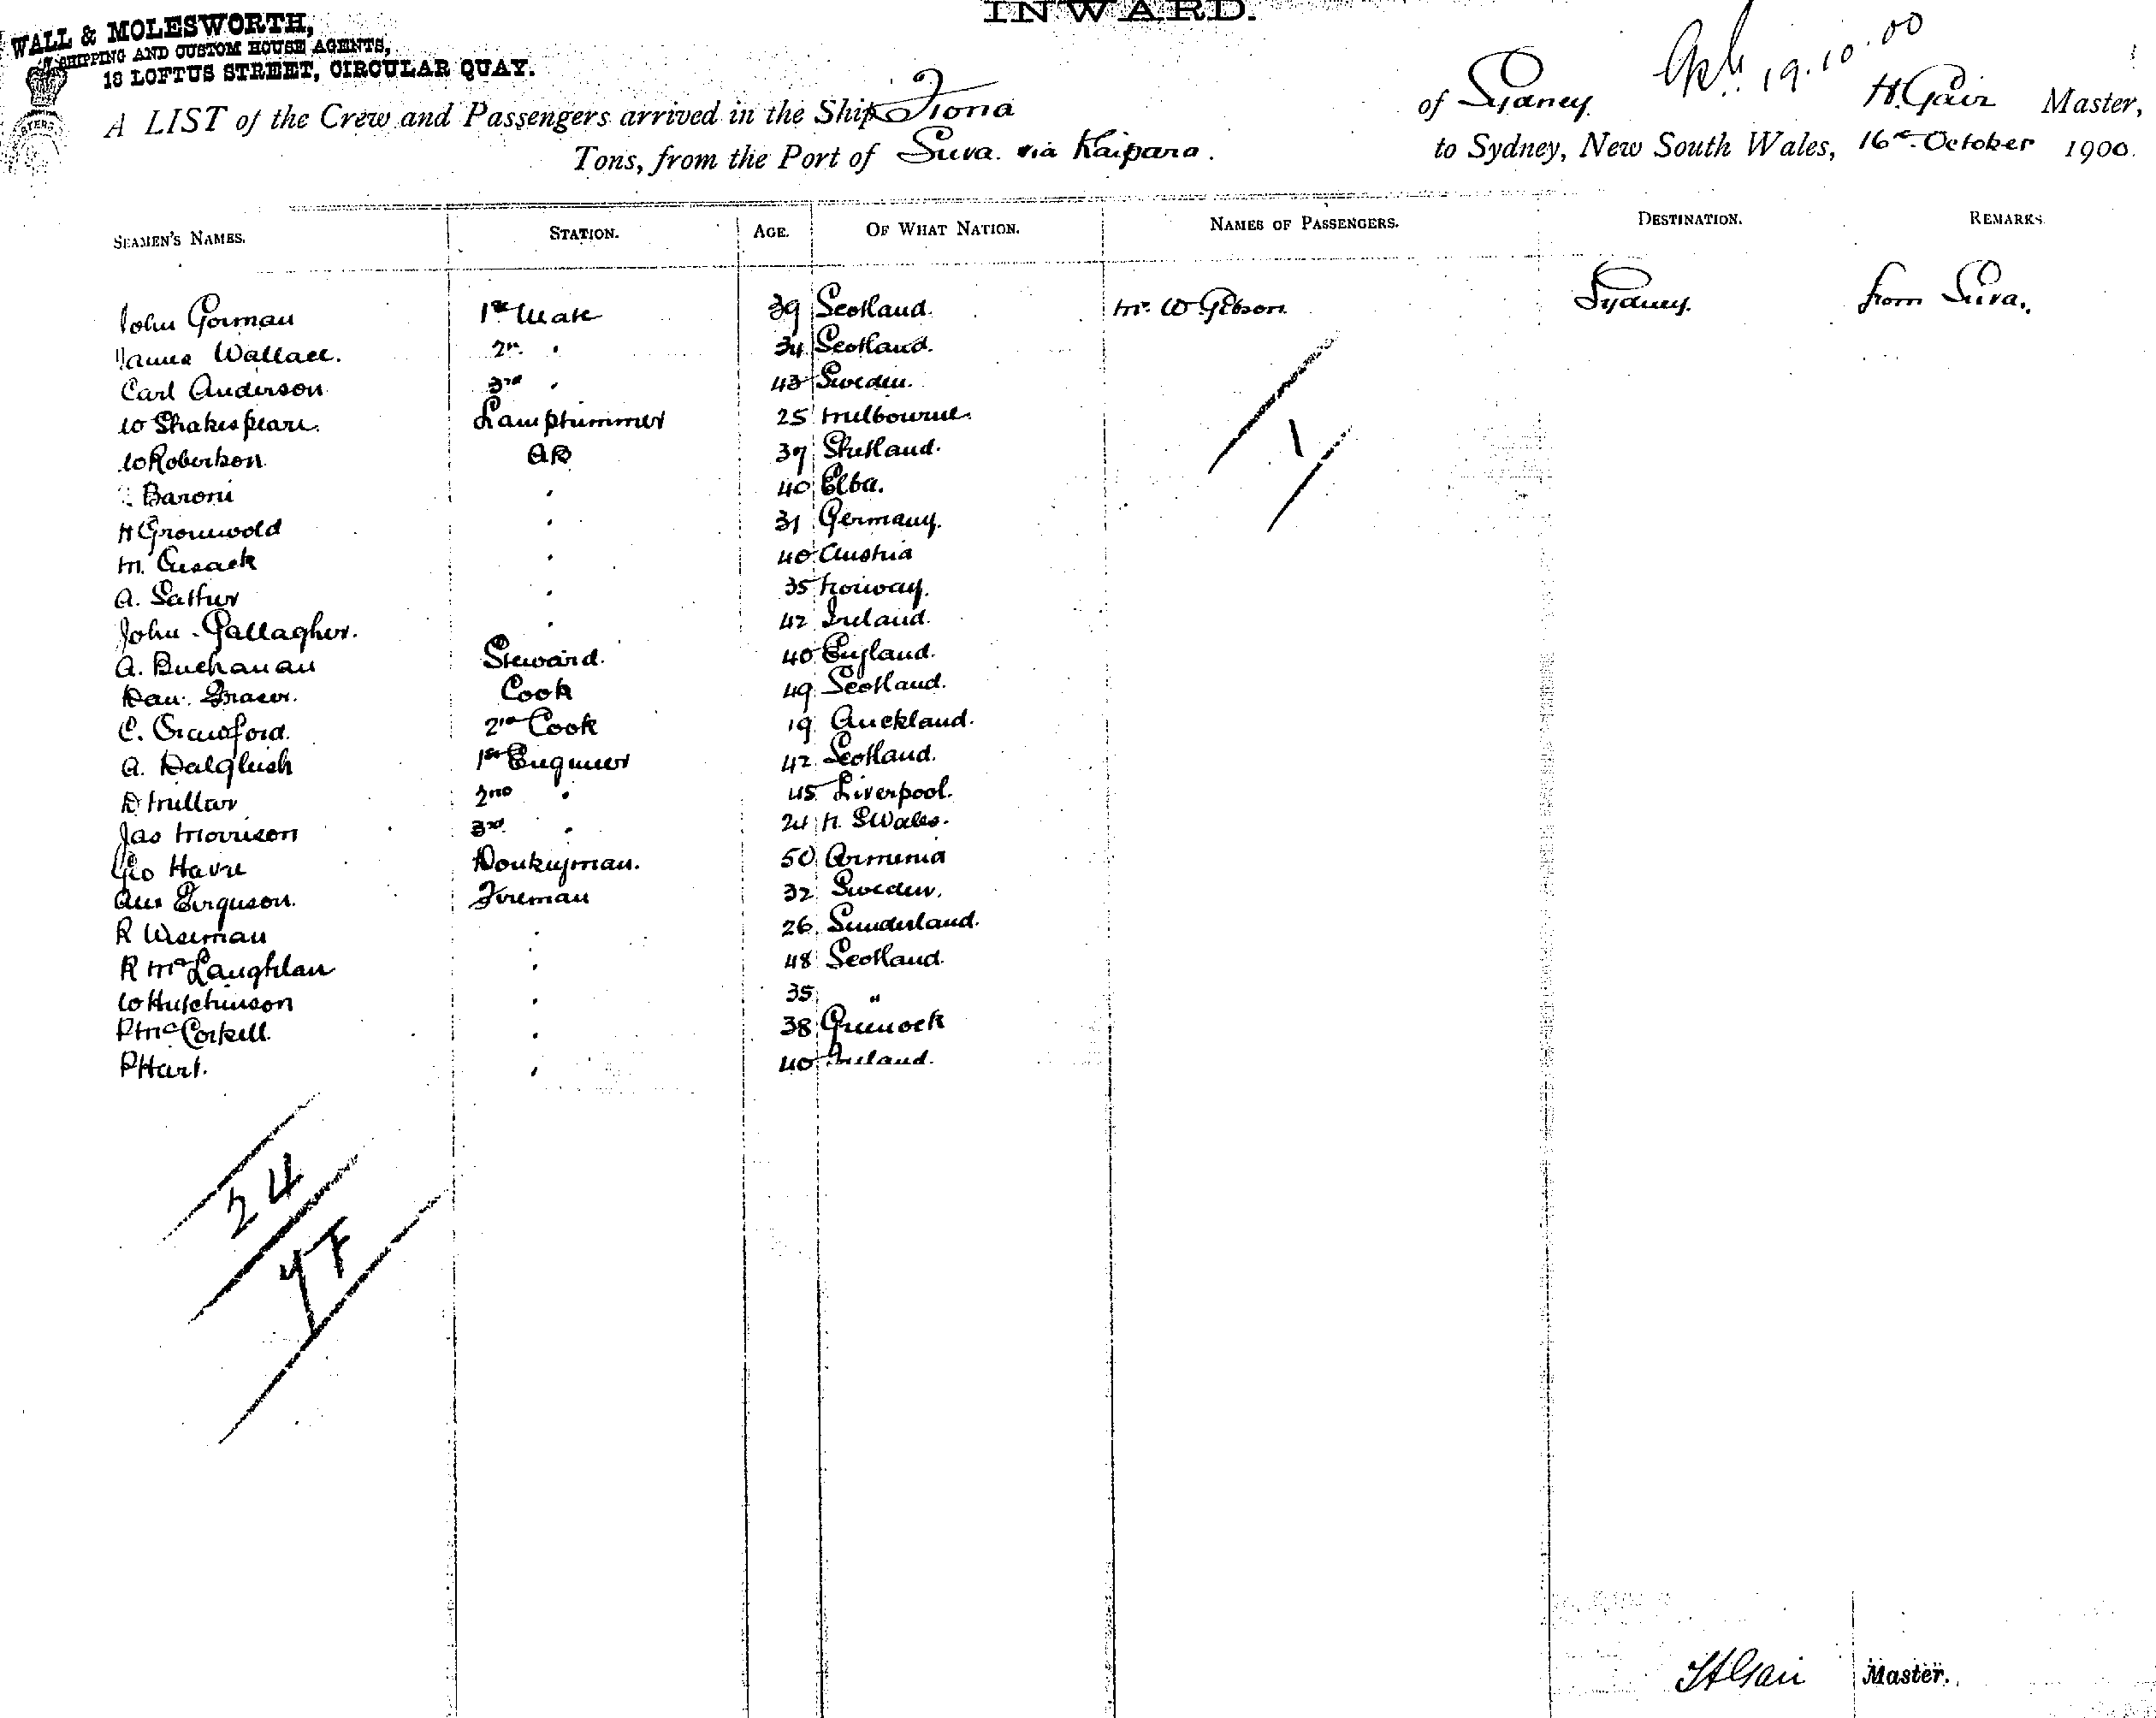 INWARD.
WALL & MOLESWORTH,
SHIPPING AND CUSTOM HOUSE AGENTS,
18 LOFTUS STREET, CIRCULAR QUAY.
19.10.00
A LIST of the Crew and Passengers arrived in the Ship Fiona of Sydney H. Gair Master,
Tons, from the Port of Suva. via Kaipara. to Sydney, New South Wales, 16th October 1900.
SEAMEN'S NAMES. STATION. AGE. OF WHAT NATION. NAMES OF PASSENGERS. DESTINATION. REMARKS
John Gorman 1st Mate 39 Scotland. Mr. W Gibson. Sydney. from Suva.
James Wallace. 2n. " 34 Scotland.
Carl Anderson 3rd " 43 Sweden.
W Shakespeare. Lamptrimmer 25 Melbourne.
W Robertson AB 37 Shetland.
Baroni " 40 Elba.
H Gronwold " 31 Germany.
M. Cusack " 40 Austria
A. Sather " 35 Norway.
John Gallagher. " 42 Ireland.
A. Buchanan Steward. 40 England.
Dan. Fraser. Cook 49 Scotland.
C. Crawford. 2nd Cook 19 Auckland.
A. Dalgleish 1st Engineer 42 Scotland.
D Millar 2nd " 45 Liverpool.
Jas Morrison 3rd " 24 N. S Wales.
Geo Havre Donkeyman. 50 Armenia
Ferguson. Fireman 32 Sweden.
R Wiseman " 26 Sunderland.
R McLaughlan " 48 Scotland.
W Hutchinson " 35 "
P McCorkell. " 38 Greenock
P Hart. " 40 Ireland.
1
24
H Gair Master.